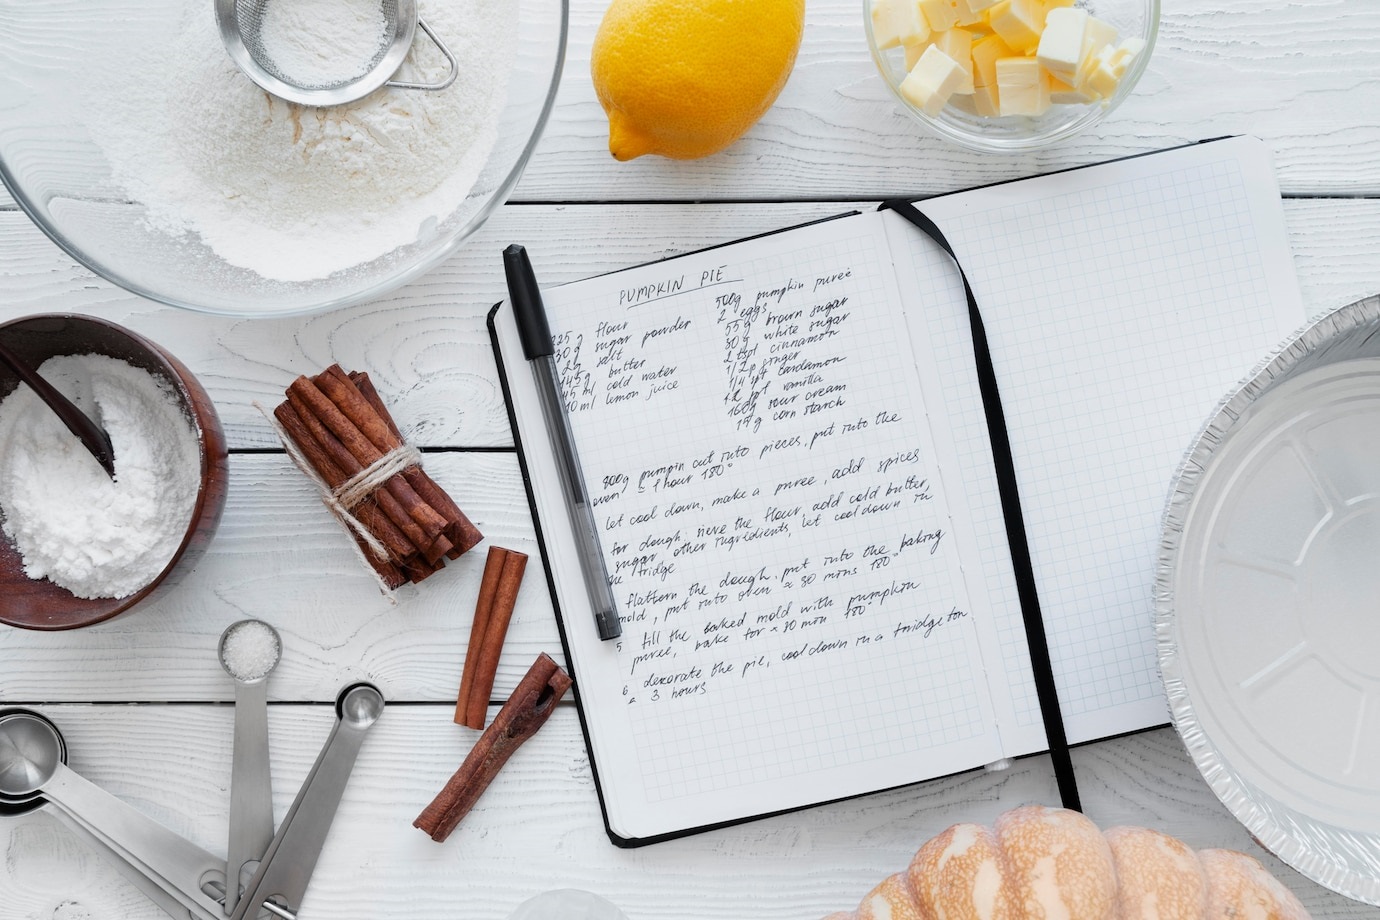 PUMPKIN PIE
225 g flour
30g sugar powder
2g salt
145g butter
45 ml cold water
10ml lemon juice
500g pumpkin puree
2 eggs
55g brown sugar
30g white sugar
2 tspl cinnamon
1/2 ginger
1/4 spt cardamon
vanilla
160g sour cream
15g corn starch
800g pumpin cut into pieces, put into the
oven ≈ 1 hour 180°
let cool down, make a puree, add spices
for dough: sieve the flour, add cold butter,
sugar other ingredients, let cool down in
the fridge
flattern the dough, put into the baking
mold, put into oven ≈ 30 mins 180°
5 fill the baked mold with pumpkin
puree, bake for ≈ 30 min 180°
6 decorate the pie, cool down in a fridge for
≈ 3 hours